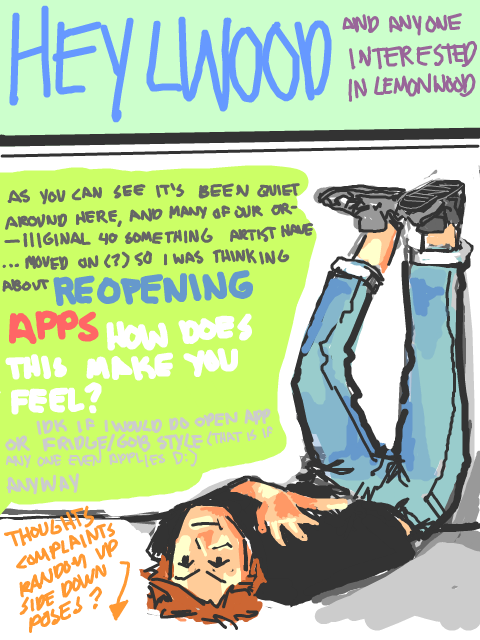 HEY LWOOD
AND ANYONE
INTERESTED
IN LEMONWOOD
AS YOU CAN SEE IT'S BEEN QUIET
AROUND HERE, AND MANY OF OUR OR-
—IIIGINAL 40 SOMETHING ARTIST HAVE
... MOVED ON (?) SO I WAS THINKING
ABOUT REOPENING
APPS HOW DOES
THIS MAKE YOU
FEEL?
IDK IF I WOULD DO OPEN APP
OR FRIDGE/GOB STYLE (THAT IS IF
ANY ONE EVEN APPLIES D:)
ANYWAY
THOUGHTS
COMPLAINTS
RANDOM UP
SIDE DOWN
POSES?